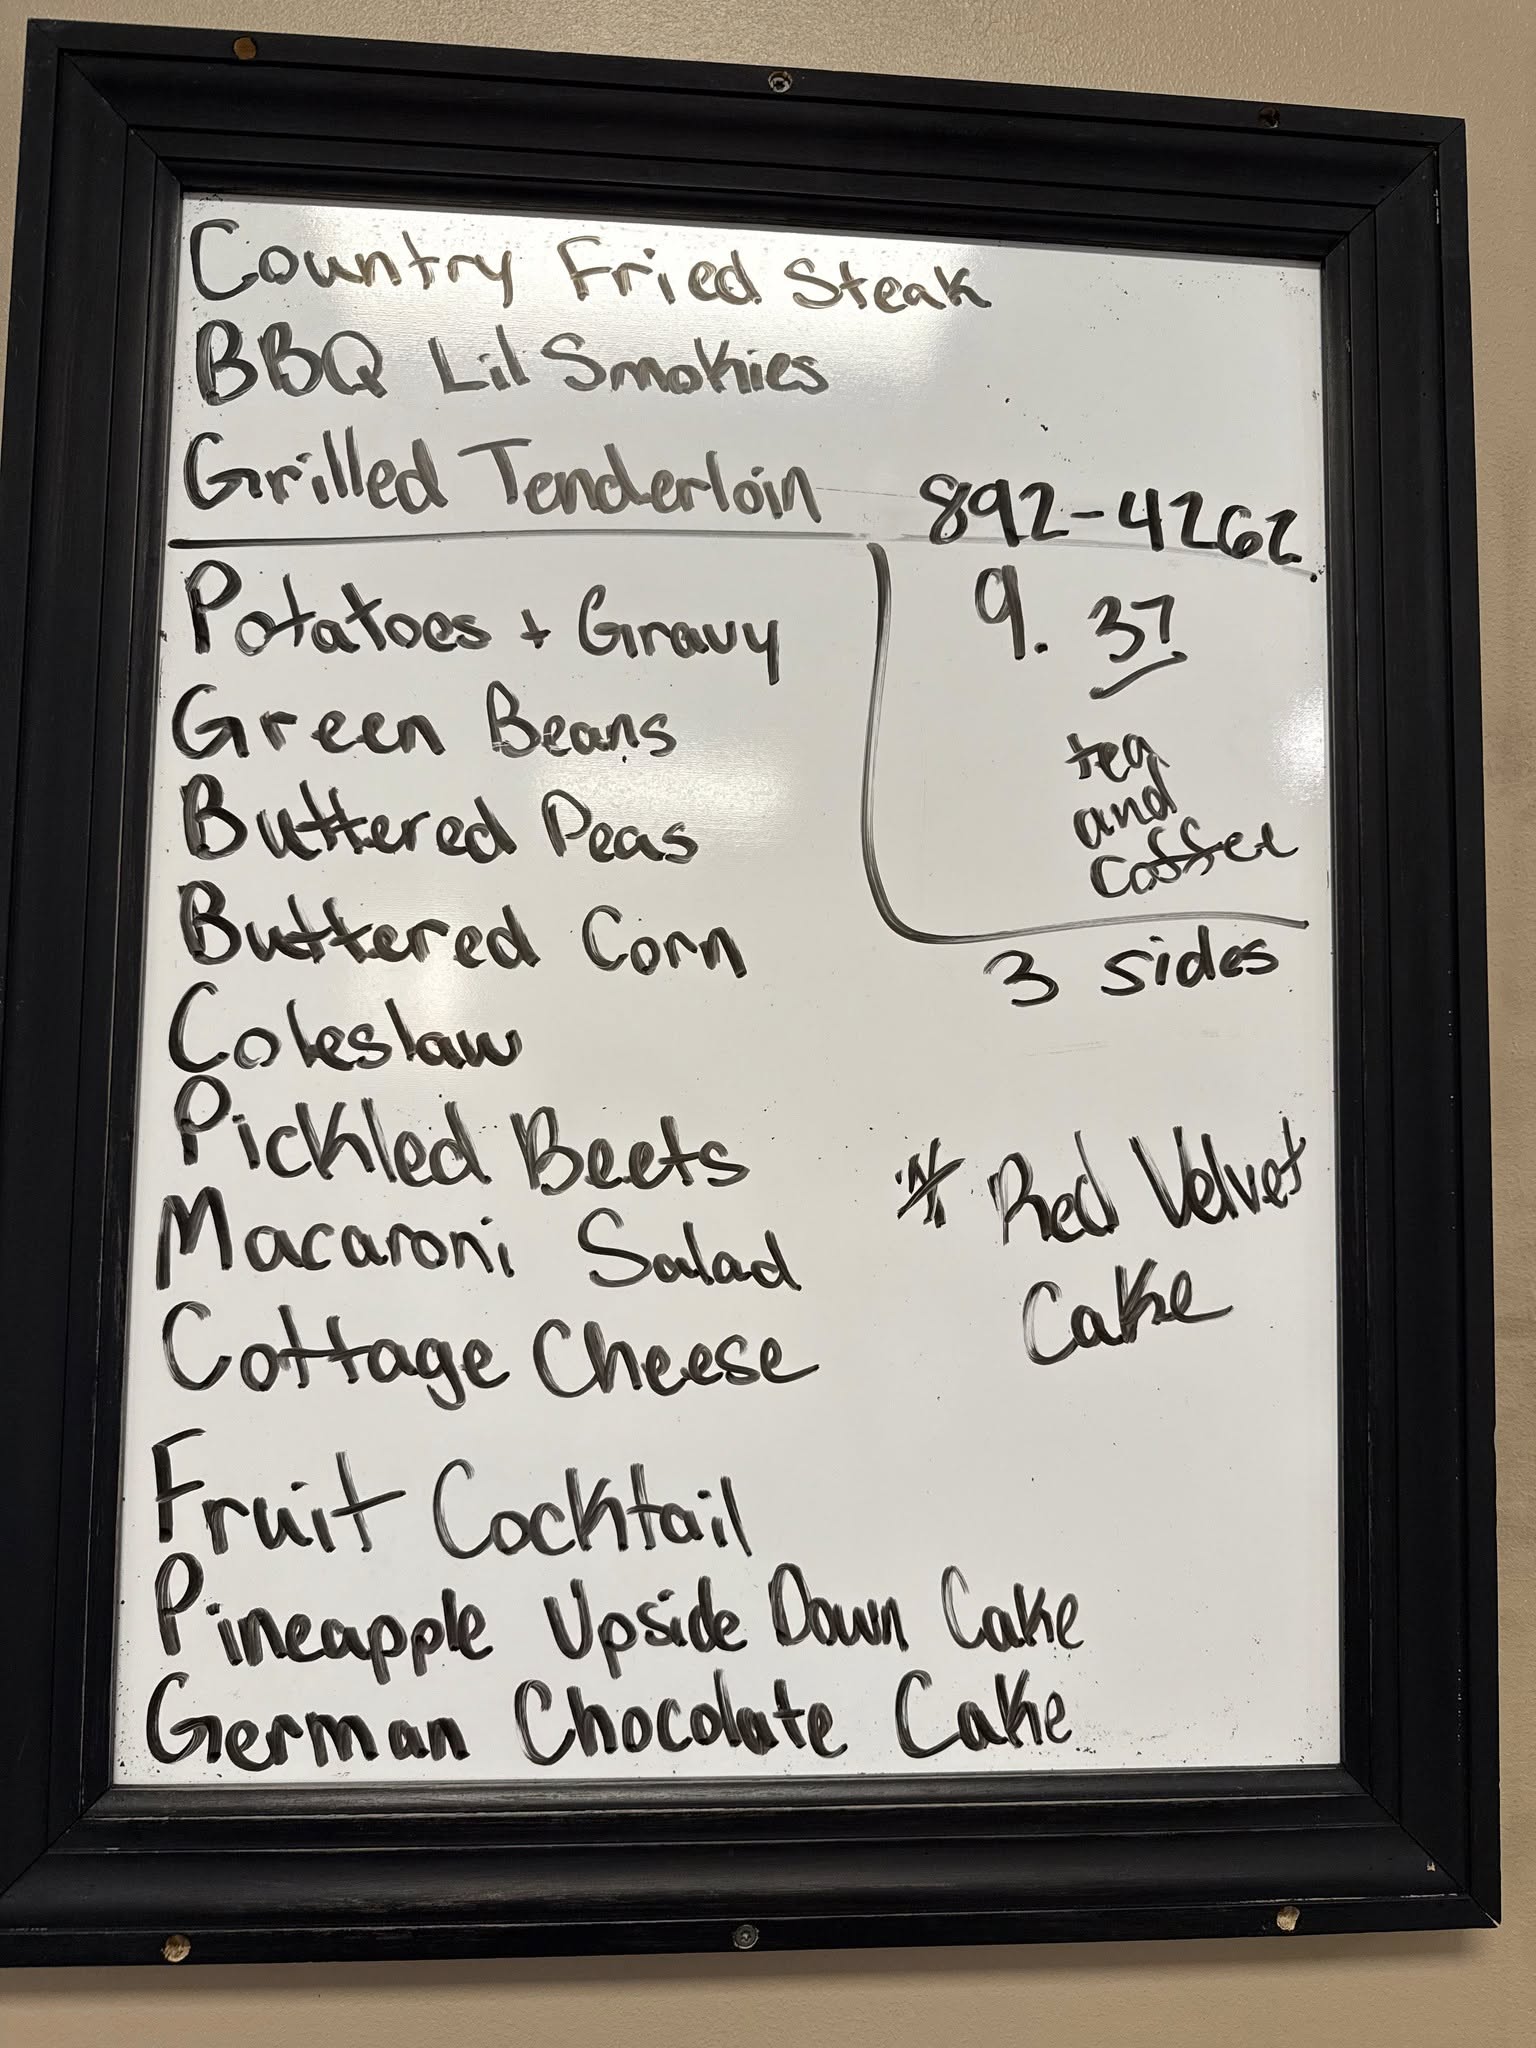 Country Fried Steak
BBQ Lil Smokies
Grilled Tenderloin
892-4262
Potatoes + Gravy
9.37
Green Beans
tea
and
coffee
Buttered Peas
Buttered Corn
3 sides
Coleslaw
Pickled Beets
* Red Velvet
Cake
Macaroni Salad
Cottage Cheese
Fruit Cocktail
Pineapple Upside Down Cake
German Chocolate Cake